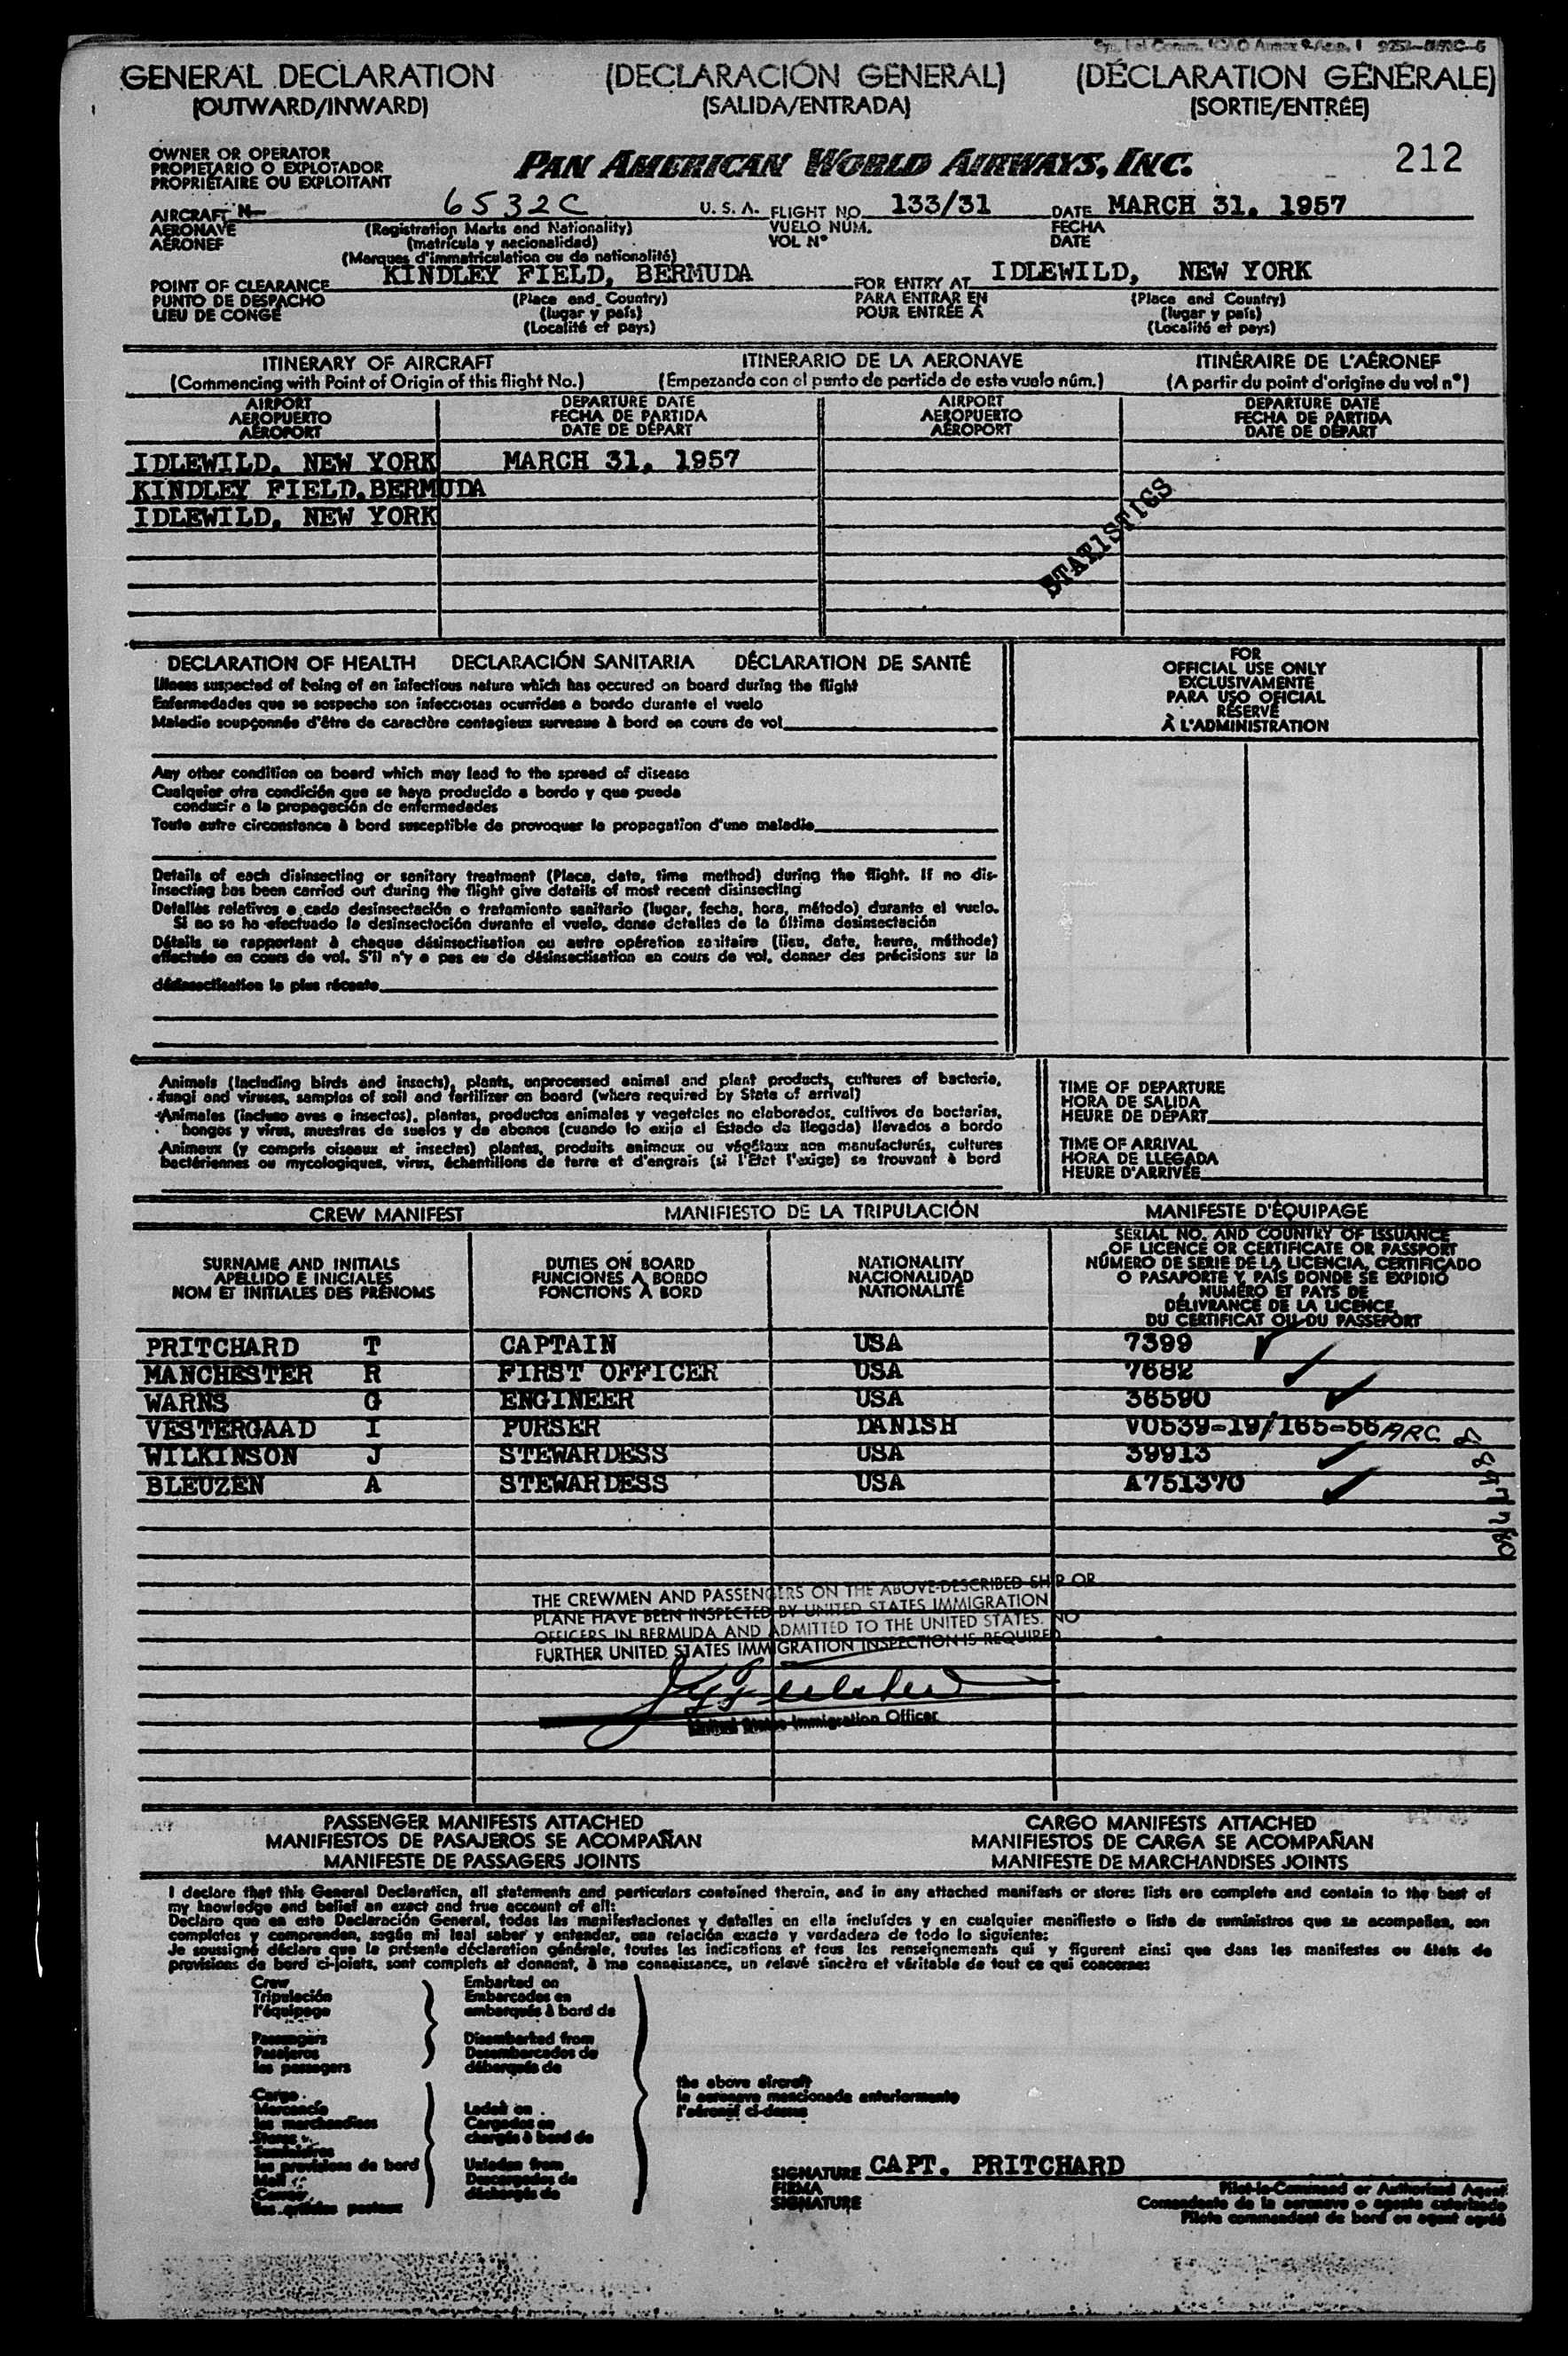 GENERAL DECLARATION (DECLARACIÓN GENERAL) (DÉCLARATION GÉNÉRALE)
(OUTWARD/INWARD) (SALIDA/ENTRADA) (SORTIE/ENTRÉE)
OWNER OR OPERATOR
PROPIETARIO O EXPLOTADOR
PROPRIÉTAIRE OU EXPLOITANT
PAN AMERICAN WORLD AIRWAYS, INC. 212
AIRCRAFT N 6532C U. S. A. FLIGHT NO. 133/31 DATE MARCH 31, 1957
AERONAVE (Registration Marks and Nationality) VUELO NÚM. FECHA
AÉRONEF (matrícula y nacionalidad) VOL N° DATE
(Marques d'immatriculation ou de nationalité)
POINT OF CLEARANCE KINDLEY FIELD, BERMUDA FOR ENTRY AT IDLEWILD, NEW YORK
PUNTO DE DESPACHO (Place and Country) PARA ENTRAR EN (Place and Country)
LIEU DE CONGÉ (lugar y país) POUR ENTRÉE À (lugar y país)
(Localité et pays) (Localité et pays)
ITINERARY OF AIRCRAFT ITINERARIO DE LA AERONAVE ITINÉRAIRE DE L'AÉRONEF
(Commencing with Point of Origin of this flight No.) (Empezando con el punto de partida de este vuelo núm.) (A partir du point d'origine du vol n°)
AIRPORT DEPARTURE DATE AIRPORT DEPARTURE DATE
AEROPUERTO FECHA DE PARTIDA AEROPUERTO FECHA DE PARTIDA
AÉROPORT DATE DE DÉPART AÉROPORT DATE DE DÉPART
IDLEWILD, NEW YORK MARCH 31, 1957
KINDLEY FIELD, BERMUDA
IDLEWILD, NEW YORK
STATISTICS
DECLARATION OF HEALTH DECLARACIÓN SANITARIA DÉCLARATION DE SANTÉ
Illness suspected of being of an infectious nature which has occured on board during the flight
Enfermedades que se sospecha son infecciosas ocurridas a bordo durante el vuelo
Maladie soupçonnée d'être de caractère contagieux survenue à bord en cours de vol
FOR
OFFICIAL USE ONLY
EXCLUSIVAMENTE
PARA USO OFICIAL
RÉSERVÉ
À L'ADMINISTRATION
Any other condition on board which may lead to the spread of disease
Cualquier otra condición que se haya producido a bordo y que pueda
conducir a la propagación de enfermedades
Toute autre circonstance à bord susceptible de provoquer la propagation d'une maladie
Details of each disinsecting or sanitary treatment (Place, date, time method) during the flight. If no dis-
insecting has been carried out during the flight give details of most recent disinsecting
Detalles relativos a cada desinsectación o tratamiento sanitario (lugar, fecha, hora, método) durante el vuelo.
Si no se ha efectuado la desinsectación durante el vuelo, dense detalles de la última desinsectación
Détails se rapportant à chaque désinsectisation ou autre opération sanitaire (lieu, date, heure, méthode)
effectuée en cours de vol. S'il n'y a pas eu de désinsectisation en cours de vol, donner des précisions sur la
désinsectisation la plus récente
Animals (Including birds and insects), plants, unprocessed animal and plant products, cultures of bacteria,
fungi and viruses, samples of soil and fertilizer on board (where required by State of arrival)
Animales (incluso aves e insectos), plantas, productos animales y vegetales no elaborados, cultivos de bacterias,
hongos y virus, muestras de suelos y de abonos (cuando lo exija el Estado de llegada) llevados a bordo
Animaux (y compris oiseaux et insectes) plantes, produits animaux ou végétaux non manufacturés, cultures
bactériennes ou mycologiques, virus, échantillons de terre et d'engrais (si l'État l'exige) se trouvant à bord
TIME OF DEPARTURE
HORA DE SALIDA
HEURE DE DÉPART
TIME OF ARRIVAL
HORA DE LLEGADA
HEURE D'ARRIVÉE
CREW MANIFEST MANIFIESTO DE LA TRIPULACIÓN MANIFESTE D'ÉQUIPAGE
SURNAME AND INITIALS
APELLIDO E INICIALES
NOM ET INITIALES DES PRÉNOMS
DUTIES ON BOARD
FUNCIONES A BORDO
FONCTIONS À BORD
NATIONALITY
NACIONALIDAD
NATIONALITÉ
SERIAL NO. AND COUNTRY OF ISSUANCE
OF LICENCE OR CERTIFICATE OR PASSPORT
NÚMERO DE SERIE DE LA LICENCIA, CERTIFICADO
O PASAPORTE Y PAÍS DONDE SE EXPIDIÓ
NUMÉRO ET PAYS DE
DÉLIVRANCE DE LA LICENCE,
DU CERTIFICAT OU DU PASSEPORT
PRITCHARD T CAPTAIN USA 7399
MANCHESTER R FIRST OFFICER USA 7682
WARNS G ENGINEER USA 36590
VESTERGAAD I PURSER DANISH VO539-19/165-56 ARC
WILKINSON J STEWARDESS USA 39913
BLEUZEN A STEWARDESS USA A751370
THE CREWMEN AND PASSENGERS ON THE ABOVE-DESCRIBED SHIP OR
PLANE HAVE BEEN INSPECTED BY UNITED STATES IMMIGRATION
OFFICERS IN BERMUDA AND ADMITTED TO THE UNITED STATES. NO
FURTHER UNITED STATES IMMIGRATION INSPECTION IS REQUIRED
United States Immigration Officer
PASSENGER MANIFESTS ATTACHED CARGO MANIFESTS ATTACHED
MANIFIESTOS DE PASAJEROS SE ACOMPAÑAN MANIFIESTOS DE CARGA SE ACOMPAÑAN
MANIFESTE DE PASSAGERS JOINTS MANIFESTE DE MARCHANDISES JOINTS
I declare that this General Declaration, all statements and particulars contained therein, and in any attached manifests or stores lists are complete and contain to the best of
my knowledge and belief an exact and true account of all:
Declaro que en esta Declaración General, todas las manifestaciones y detalles en ella incluídos y en cualquier manifiesto o lista de suministros que se acompañan, son
completos y comprenden, según mi leal saber y entender, una relación exacta y verdadera de todo lo siguiente:
Je soussigné déclare que la présente déclaration générale, toutes les indications et tous les renseignements qui y figurent ainsi que dans les manifestes ou états de
provisions de bord ci-joints, sont complets et donnent, à ma connaissance, un relevé sincère et véritable de tout ce qui concerne:
Crew Embarked on
Tripulación Embarcados en
l'équipage embarqués à bord de
Passengers Disembarked from
Pasajeros Desembarcados de
les passagers débarqués de
the above aircraft
la aeronave mencionada anteriormente
l'aéronef ci-dessus
Cargo
Mercancía Laden on
les marchandises Cargados en
Stores chargés à bord de
Suministros
les provisions de bord Unladen from
Mail Descargados de
Correo déchargés de
les articles postaux
SIGNATURE CAPT. PRITCHARD
FIRMA Pilot-in-Command or Authorized Agent
SIGNATURE Comandante de la aeronave o agente autorizado
Pilote commandant de bord ou agent agréé